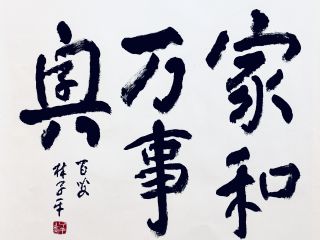 家和
万事
興
百歲
林子平